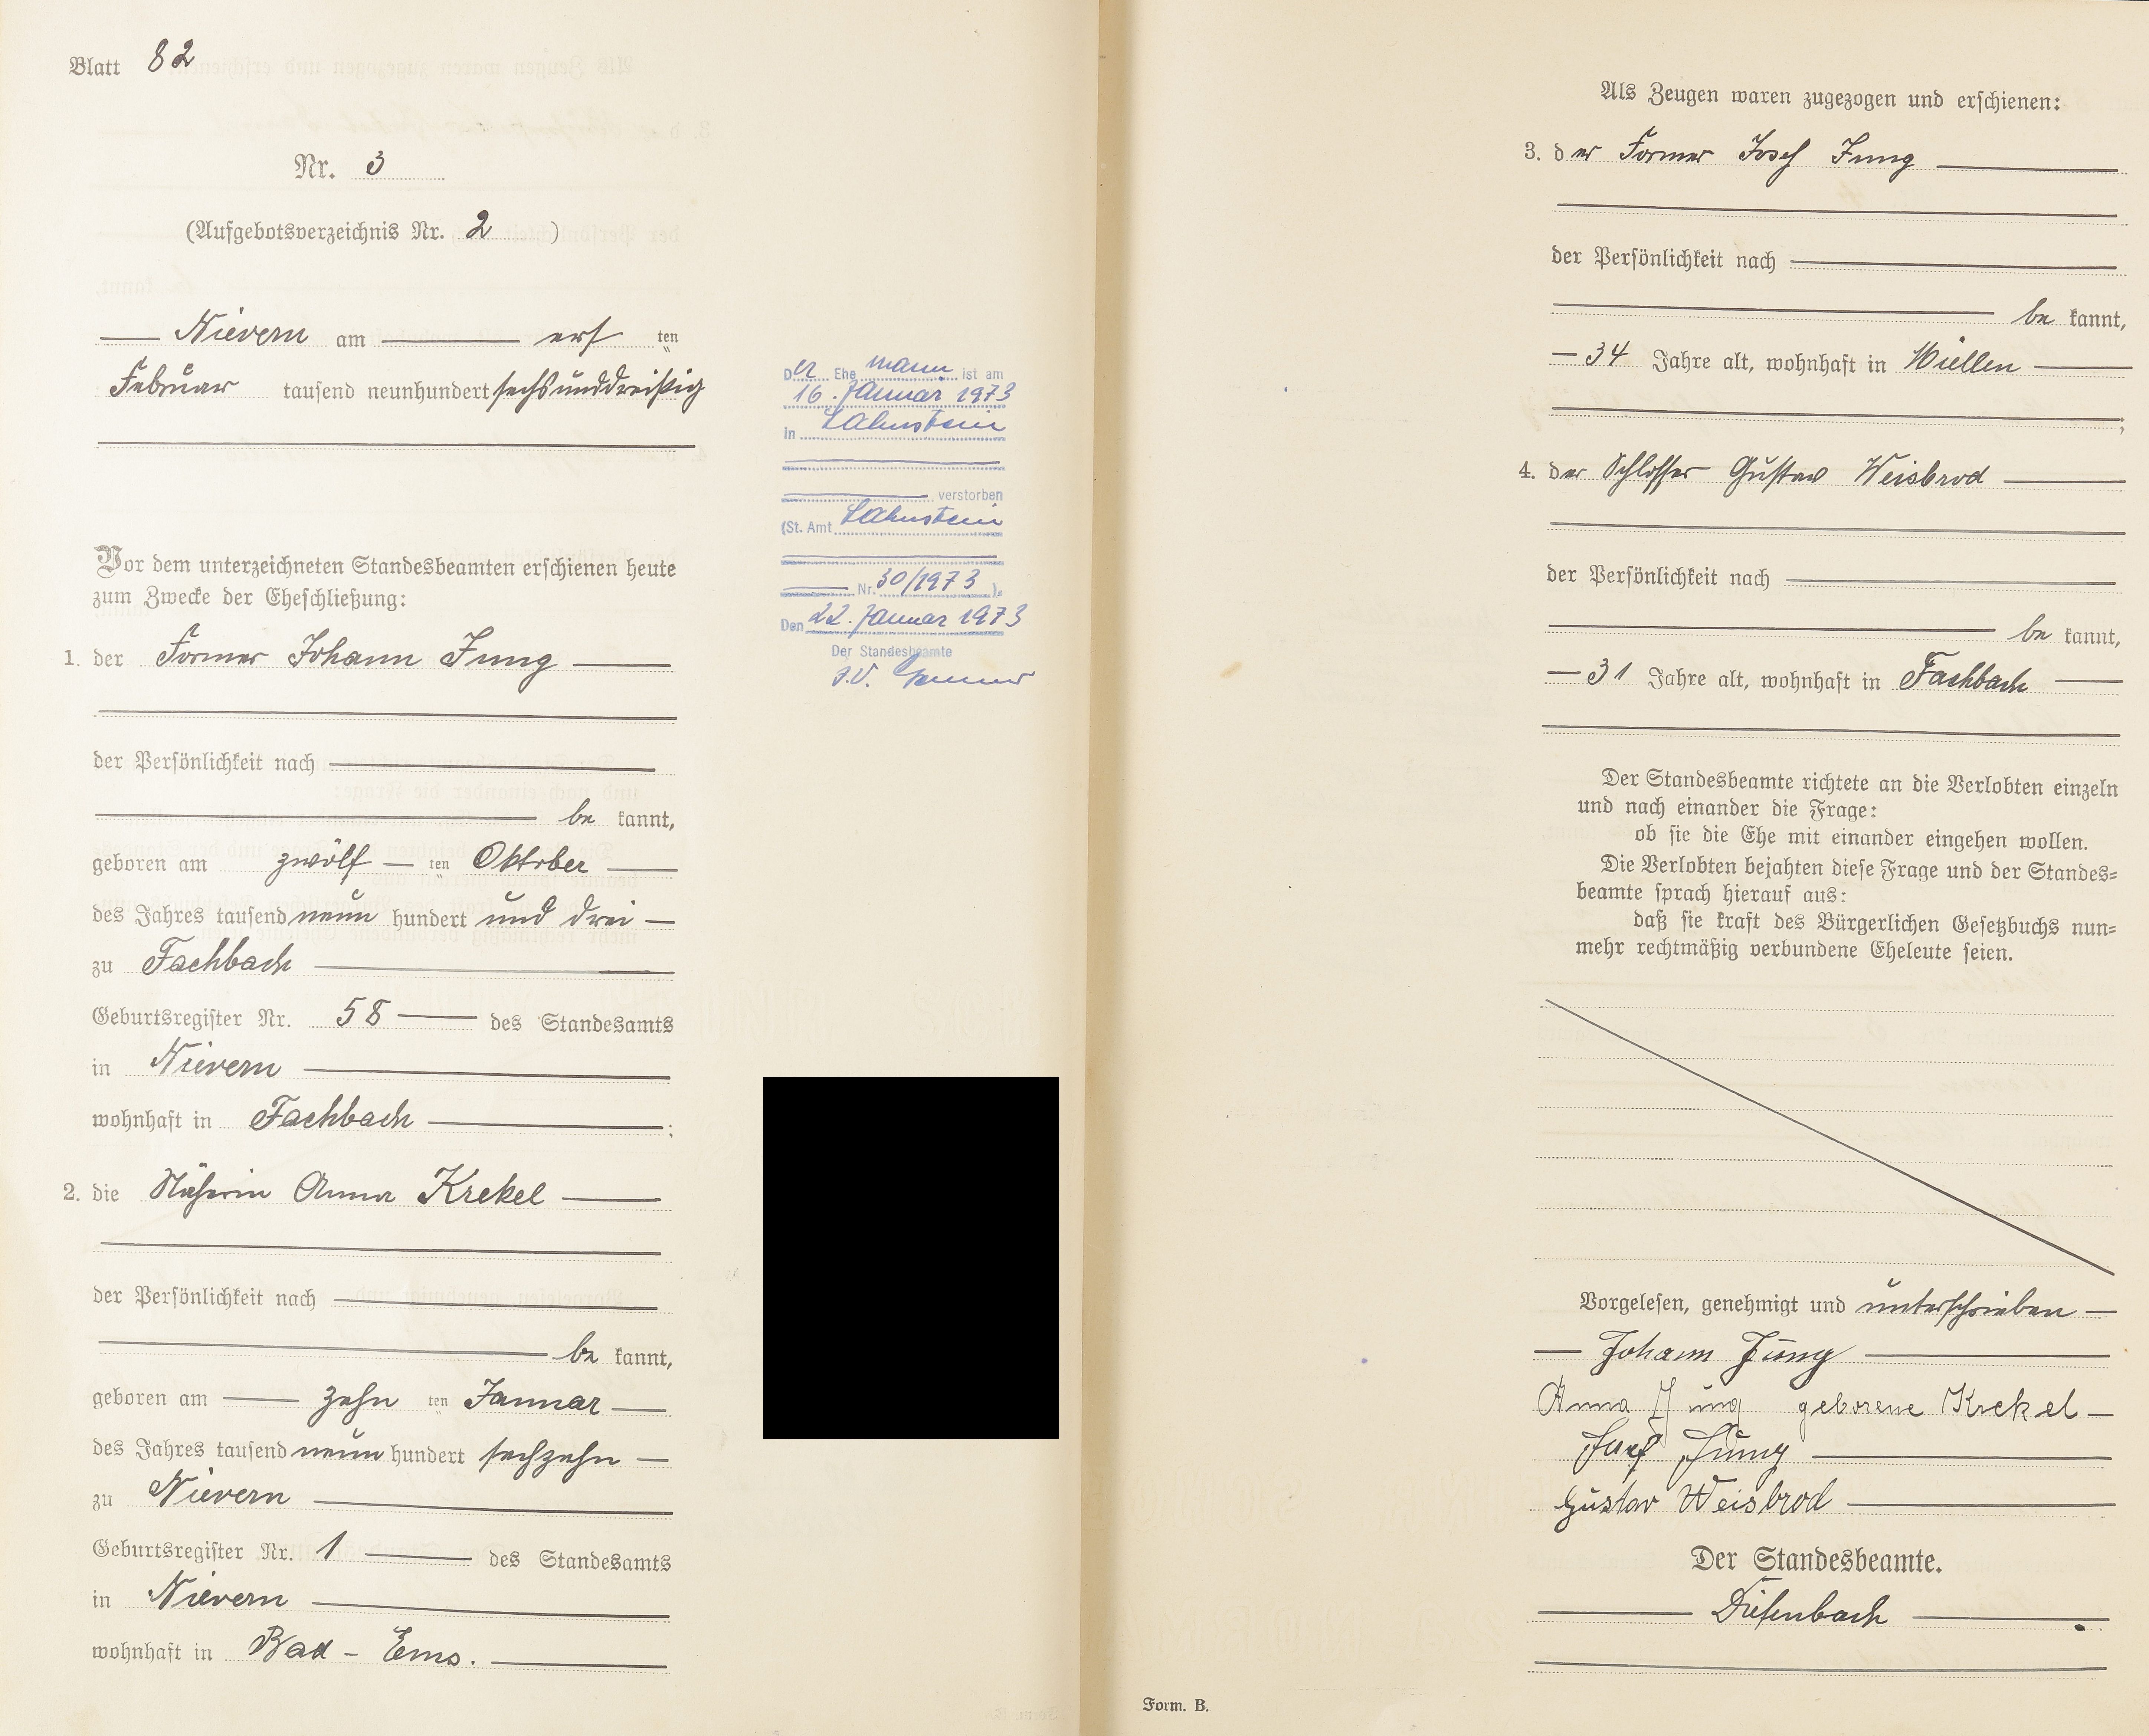 Blatt 82
Nr. 3
(Aufgebotsverzeichnis Nr. 2 )
Nievern am ers ten
Februar tausend neunhundert sechsunddreißig
Vor dem unterzeichneten Standesbeamten erschienen heute
zum Zwecke der Eheschließung:
1. der Former Johann Jung
der Persönlichkeit nach
be kannt,
geboren am zwölf ten Oktober
des Jahres tausend neun hundert und drei
zu Fachbach
Geburtsregister Nr. 58 des Standesamts
in Nievern
wohnhaft in Fachbach ;
2. die Näherin Anna Krekel
der Persönlichkeit nach
be kannt,
geboren am zehn ten Januar
des Jahres tausend neun hundert sechzehn
zu Nievern
Geburtsregister Nr. 1 des Standesamts
in Nievern
wohnhaft in Bad - Ems.
Der Ehemann ist am
16. Januar 1973
in Lahnstein
verstorben
(St. Amt Lahnstein
Nr. 30/1973 ).
Den 22. Januar 1973
Der Standesbeamte
J.V.
Als Zeugen waren zugezogen und erschienen:
3. der Former Josef Jung
der Persönlichkeit nach
be kannt,
34 Jahre alt, wohnhaft in Miellen
;
4. der Schlosser Gustav Weisbrod
der Persönlichkeit nach
be kannt,
31 Jahre alt, wohnhaft in Fachbach
Der Standesbeamte richtete an die Verlobten einzeln
und nach einander die Frage:
ob sie die Ehe mit einander eingehen wollen.
Die Verlobten bejahten diese Frage und der Standes=
beamte sprach hierauf aus:
daß sie kraft des Bürgerlichen Gesetzbuchs nun=
mehr rechtmäßig verbundene Eheleute seien.
Vorgelesen, genehmigt und unterschrieben
Johann Jung
Anna Jung geborene Krekel
Josef Jung
Gustav Weisbrod
Der Standesbeamte.
Diefenbach
Form. B.